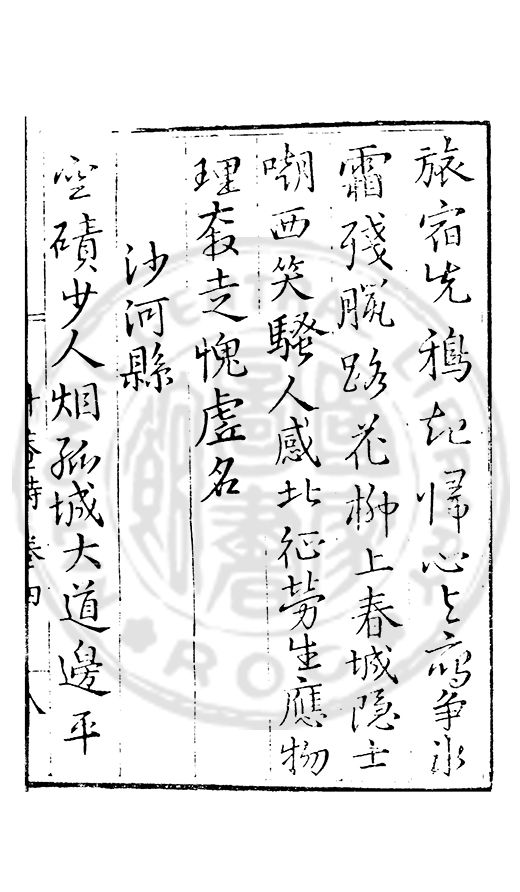 旅宿先鴉起歸心與鴈爭冰
霜殘臘路花柳上春城隠士
嘲西笑騷人感北征勞生應物
理奔走愧虛名
沙河縣
空磧少人烟孤城大道邊平